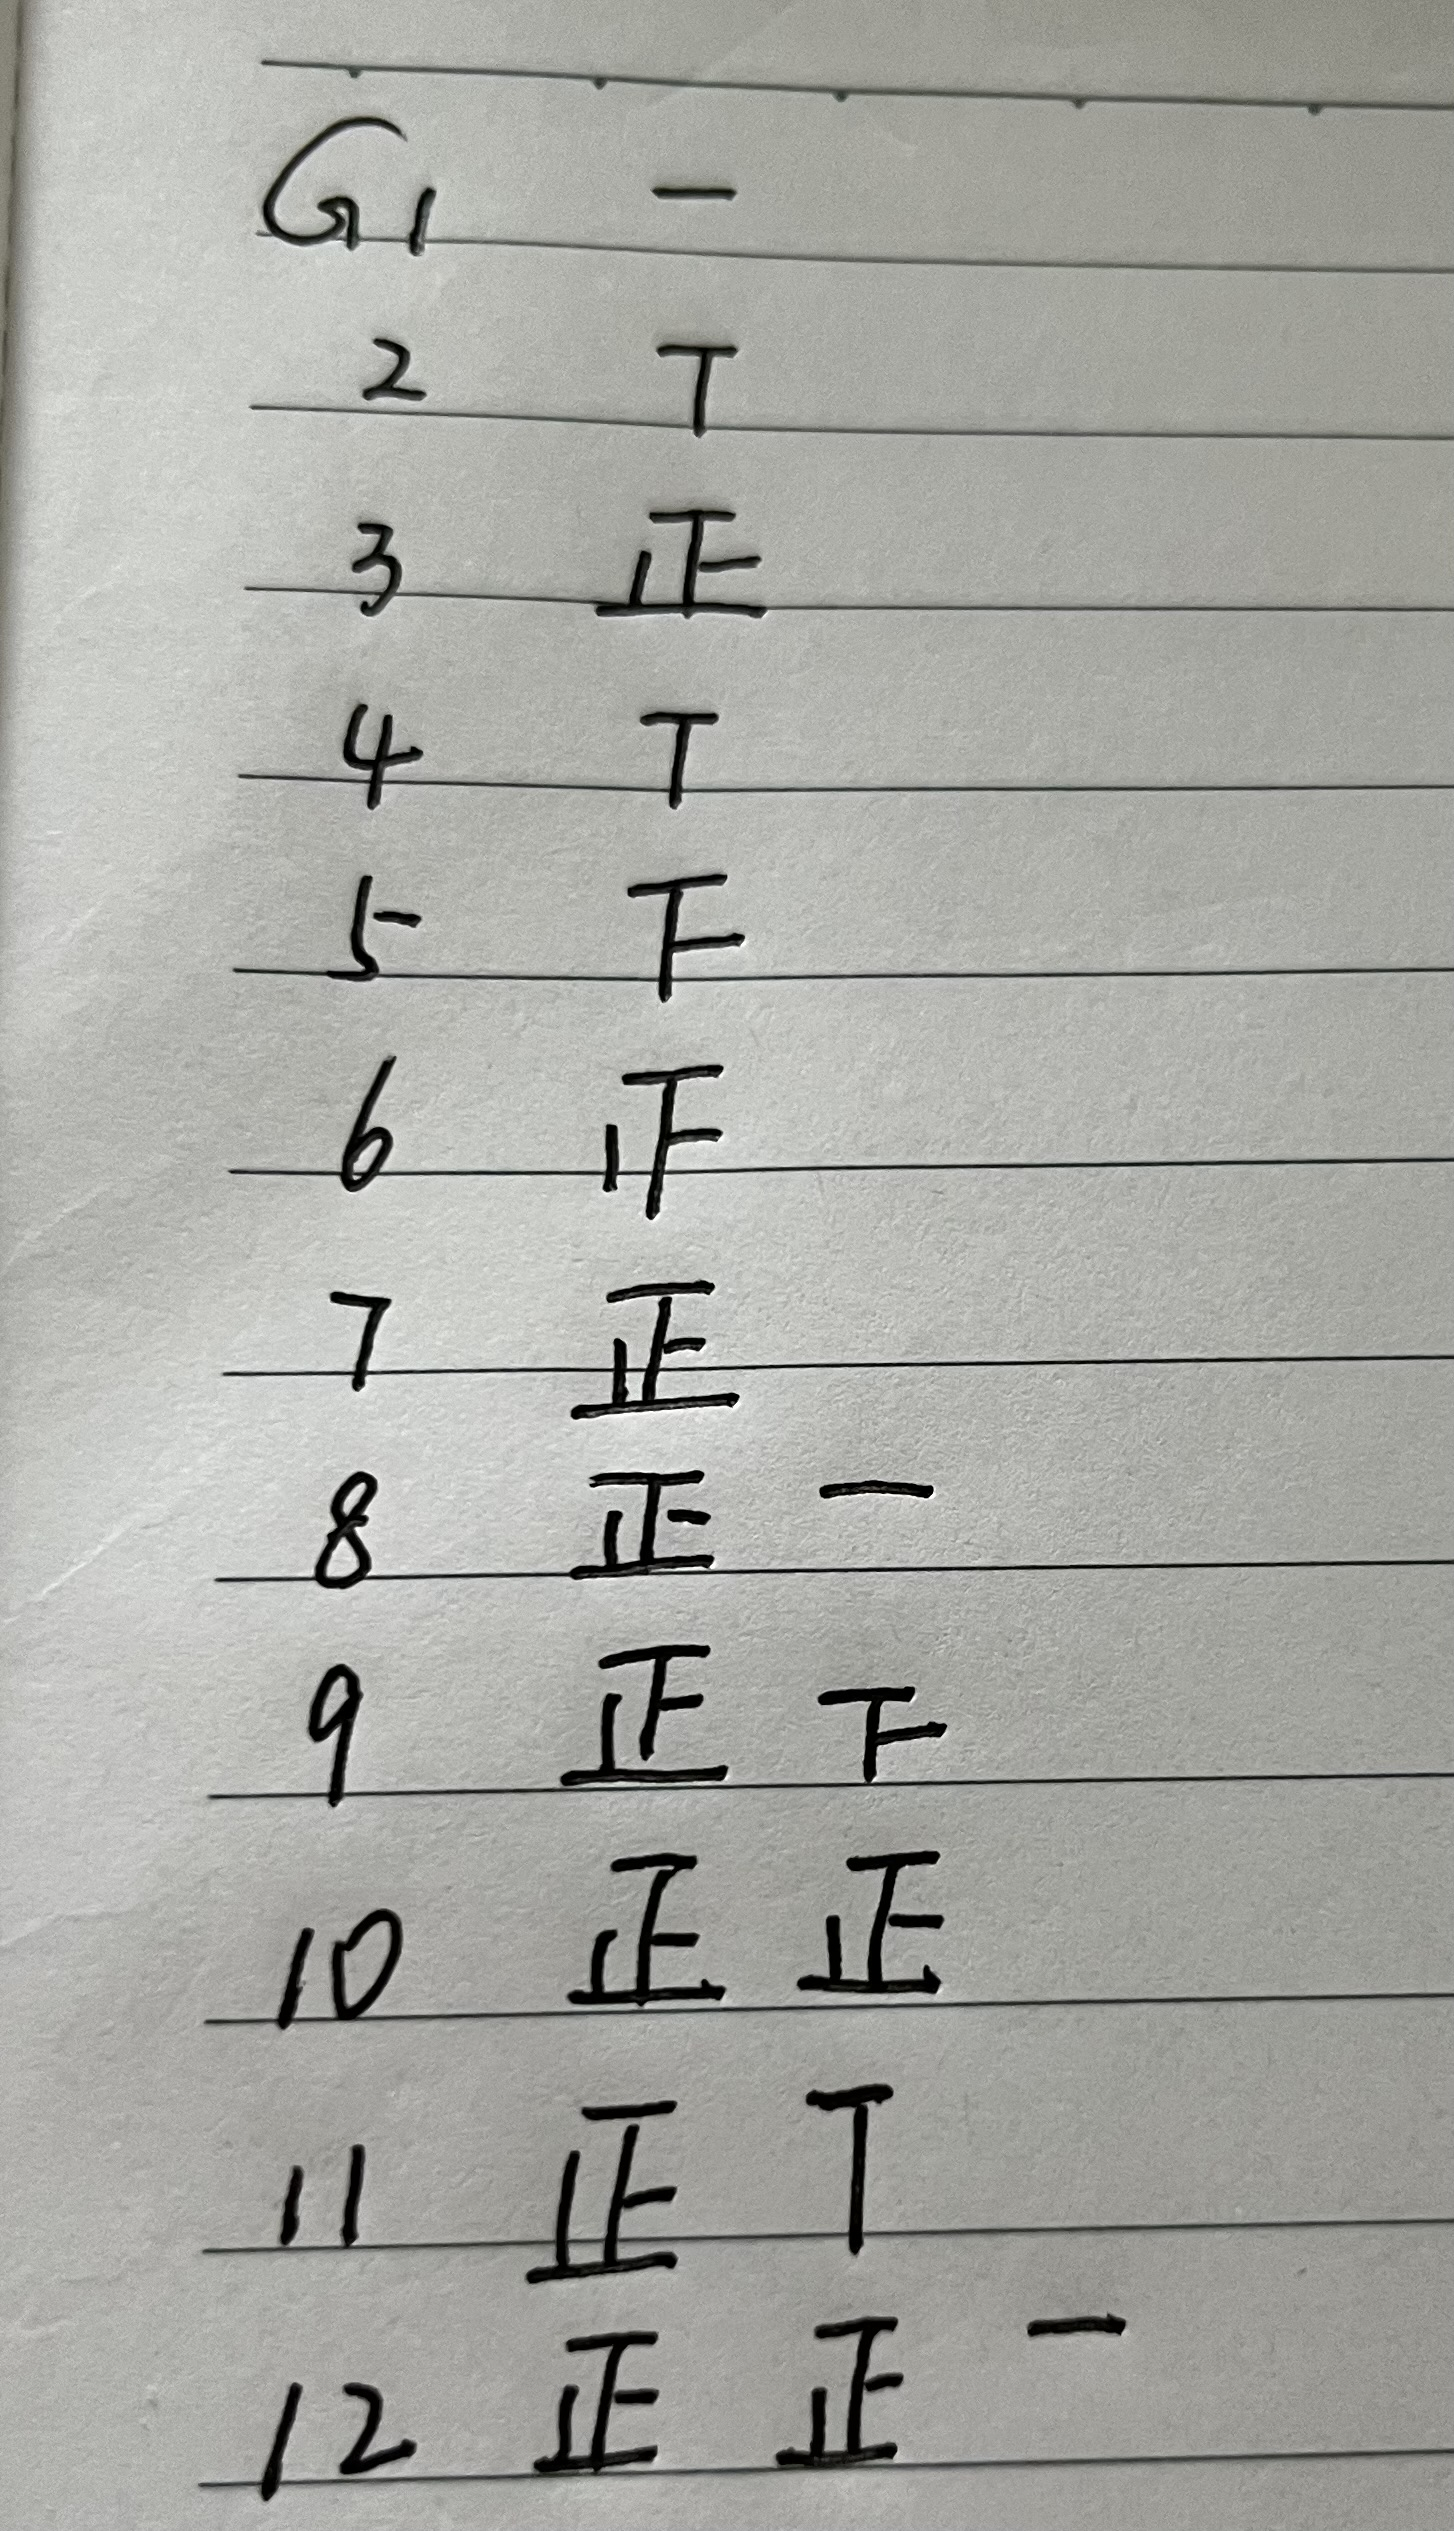 G1 一
2 T
3 正
4 T
5 下
6 止
7 正
8 正 一
9 正 下
10 正 正
11 正 T
12 正 正 一